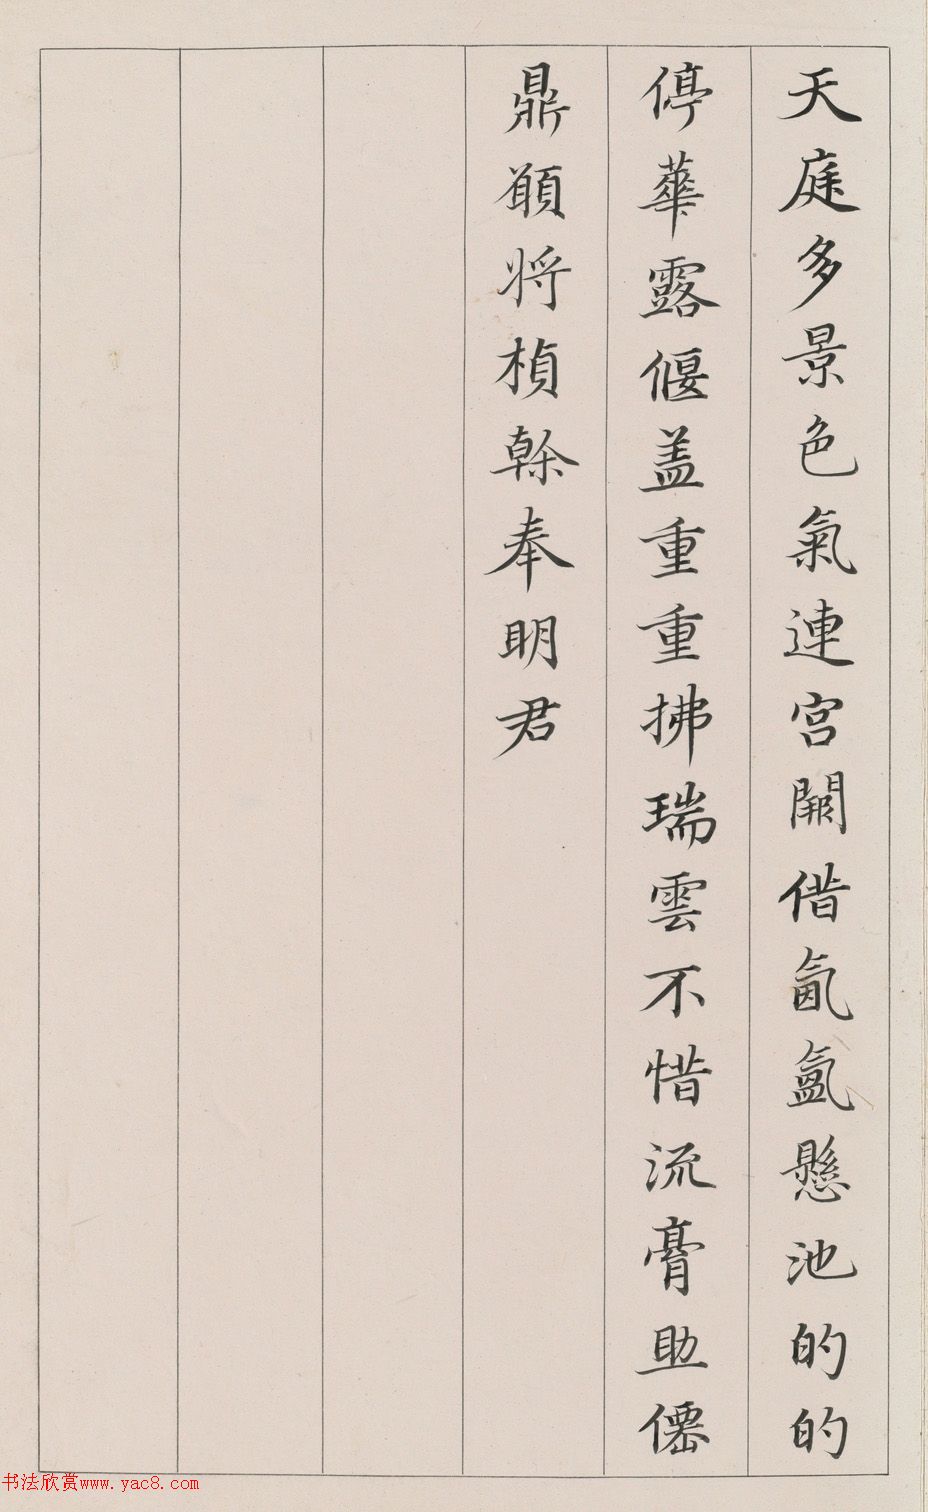 天庭多景色氣連宮闕借氤氳懸池的的
停華露偃盖重重拂瑞雲不惜流膏助僊
鼎願將楨榦奉明君
书法欣赏www.yac8.com